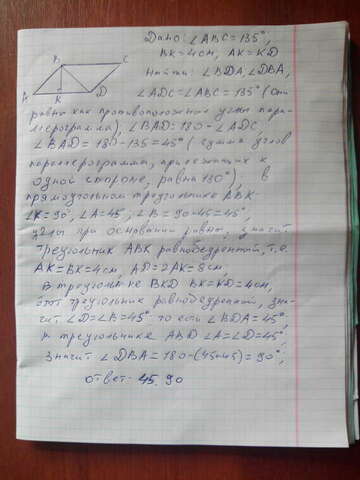 Дано: ∠ABC = 135°,
BK = 4см, AK = KD
Найти: ∠BDA, ∠DBA,
∠ADC = ∠ABC = 135° (они
равны как противоположные углы пара-
ллерограмма), ∠BAD = 180 - ∠ADC,
∠BAD = 180 - 135 = 45° (сумма углов
параллерограмма, прилежащих к
одной стороне, равна 180°); в
прямоугольном треугольнике ABK
∠K = 90°, ∠A = 45°; ∠B = 90-45 = 45°,
углы при основании равны, значит
треугольник ABK равнобедренный, т.е.
AK = BK = 4см, AD = 2AK = 8см,
В треугольнике BKD BK = KD = 4см,
этот треугольник равнобедренный, зна-
чит ∠D = ∠B = 45° то есть ∠BDA = 45°,
в треугольнике ABD ∠A = ∠D = 45°,
значит ∠DBA = 180 - (45+45) = 90°;
ответ - 45. 90
B C
A K D